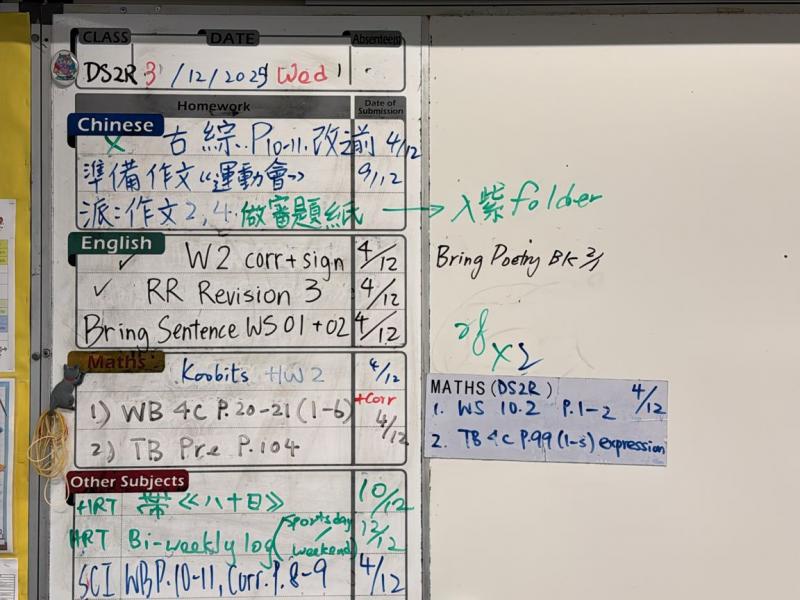 CLASS DATE Absentees
DS2R 3/12/2025 Wed 1
Homework Date of Submission
Chinese
古綜.P10-11.改前 4/12
準備作文《運動會》 9/12
派:作文2,4.做審題紙 → 入紫folder
English
✓ W2 corr+sign 4/12
✓ RR Revision 3 4/12
Bring Sentence WS 01+02 4/12
Bring Poetry BK
Maths
Koobits HW2 4/12
1) WB 4C P.20-21 (1-6) +Corr 4/12
2) TB Pre P.104
x2
MATHS (DS2R) 4/12
1. WS 10.2 P.1-2
2. TB 4C P.99 (1-3) expression
Other Subjects
HRT 帶《八十日》 10/12
HRT Bi-weekly log (Sportsday / weekend) 12/12
SCI WB P.10-11, Corr. P.8-9 4/12